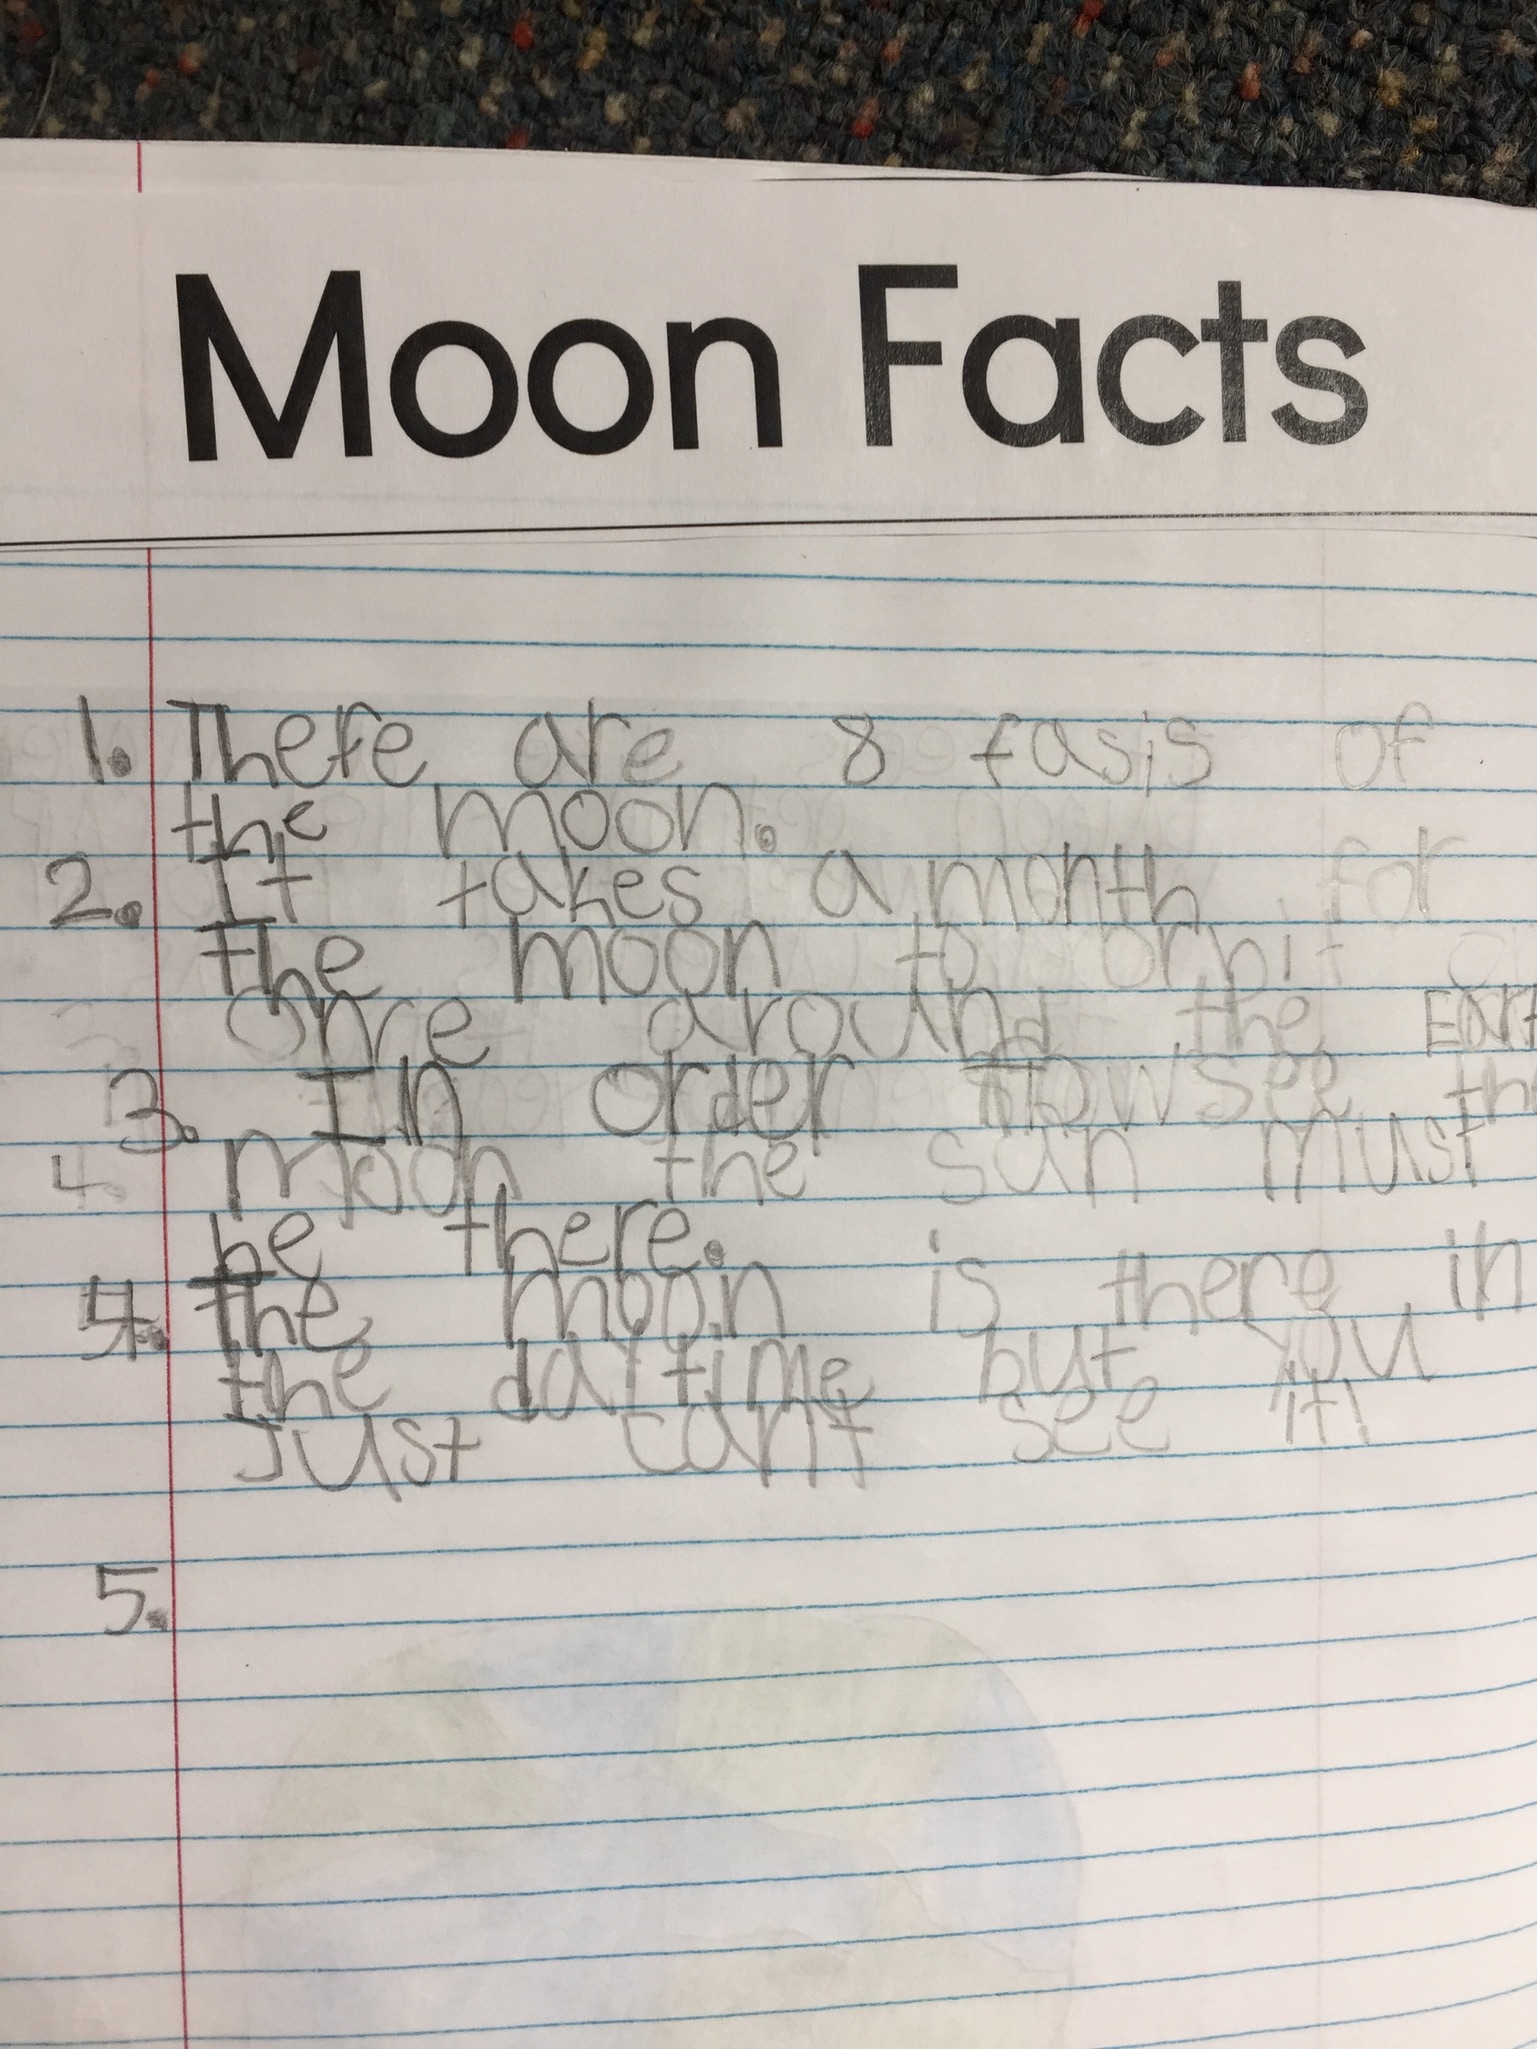 Moon Facts
1. There are 8 fasis of
the moon.
2. It takes a month for
the moon to orbit
once around the Eart
3. In order to see the
moon the sun must
4.
be there.
4. the moon is there in
the daytime but you
Just cant see it!
5.